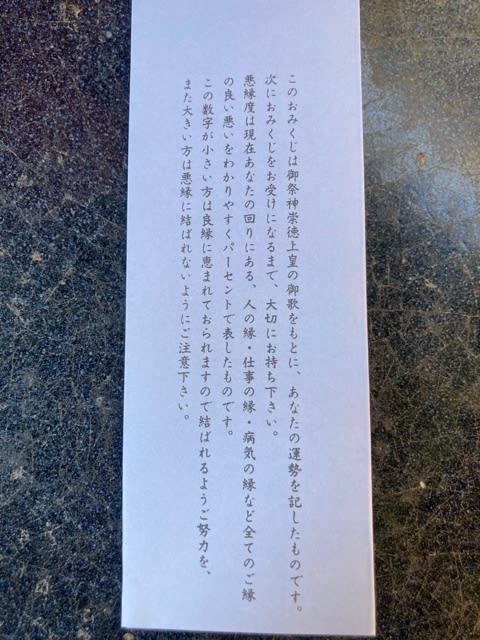 このおみくじは御祭神崇徳上皇の御歌をもとに、あなたの運勢を記したものです。
次におみくじをお受けになるまで、大切にお持ち下さい。
悪縁度は現在あなたの回りにある、人の縁・仕事の縁・病気の縁など全てのご縁
の良い悪いをわかりやすくパーセントで表したものです。
この数字が小さい方は良縁に恵まれておられますので結ばれるようご努力を、
また大きい方は悪縁に結ばれないようにご注意下さい。